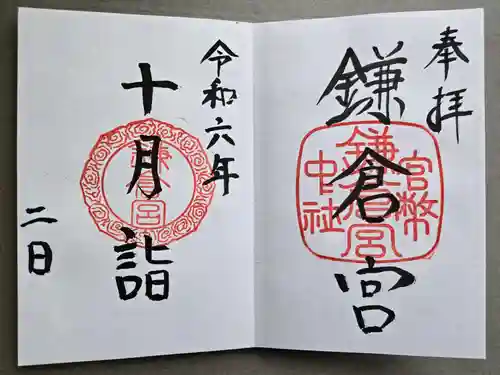 奉拝
鎌倉宮
鎌倉宮
官幣
中社
令和六年
十月詣
鎌倉宮
二日